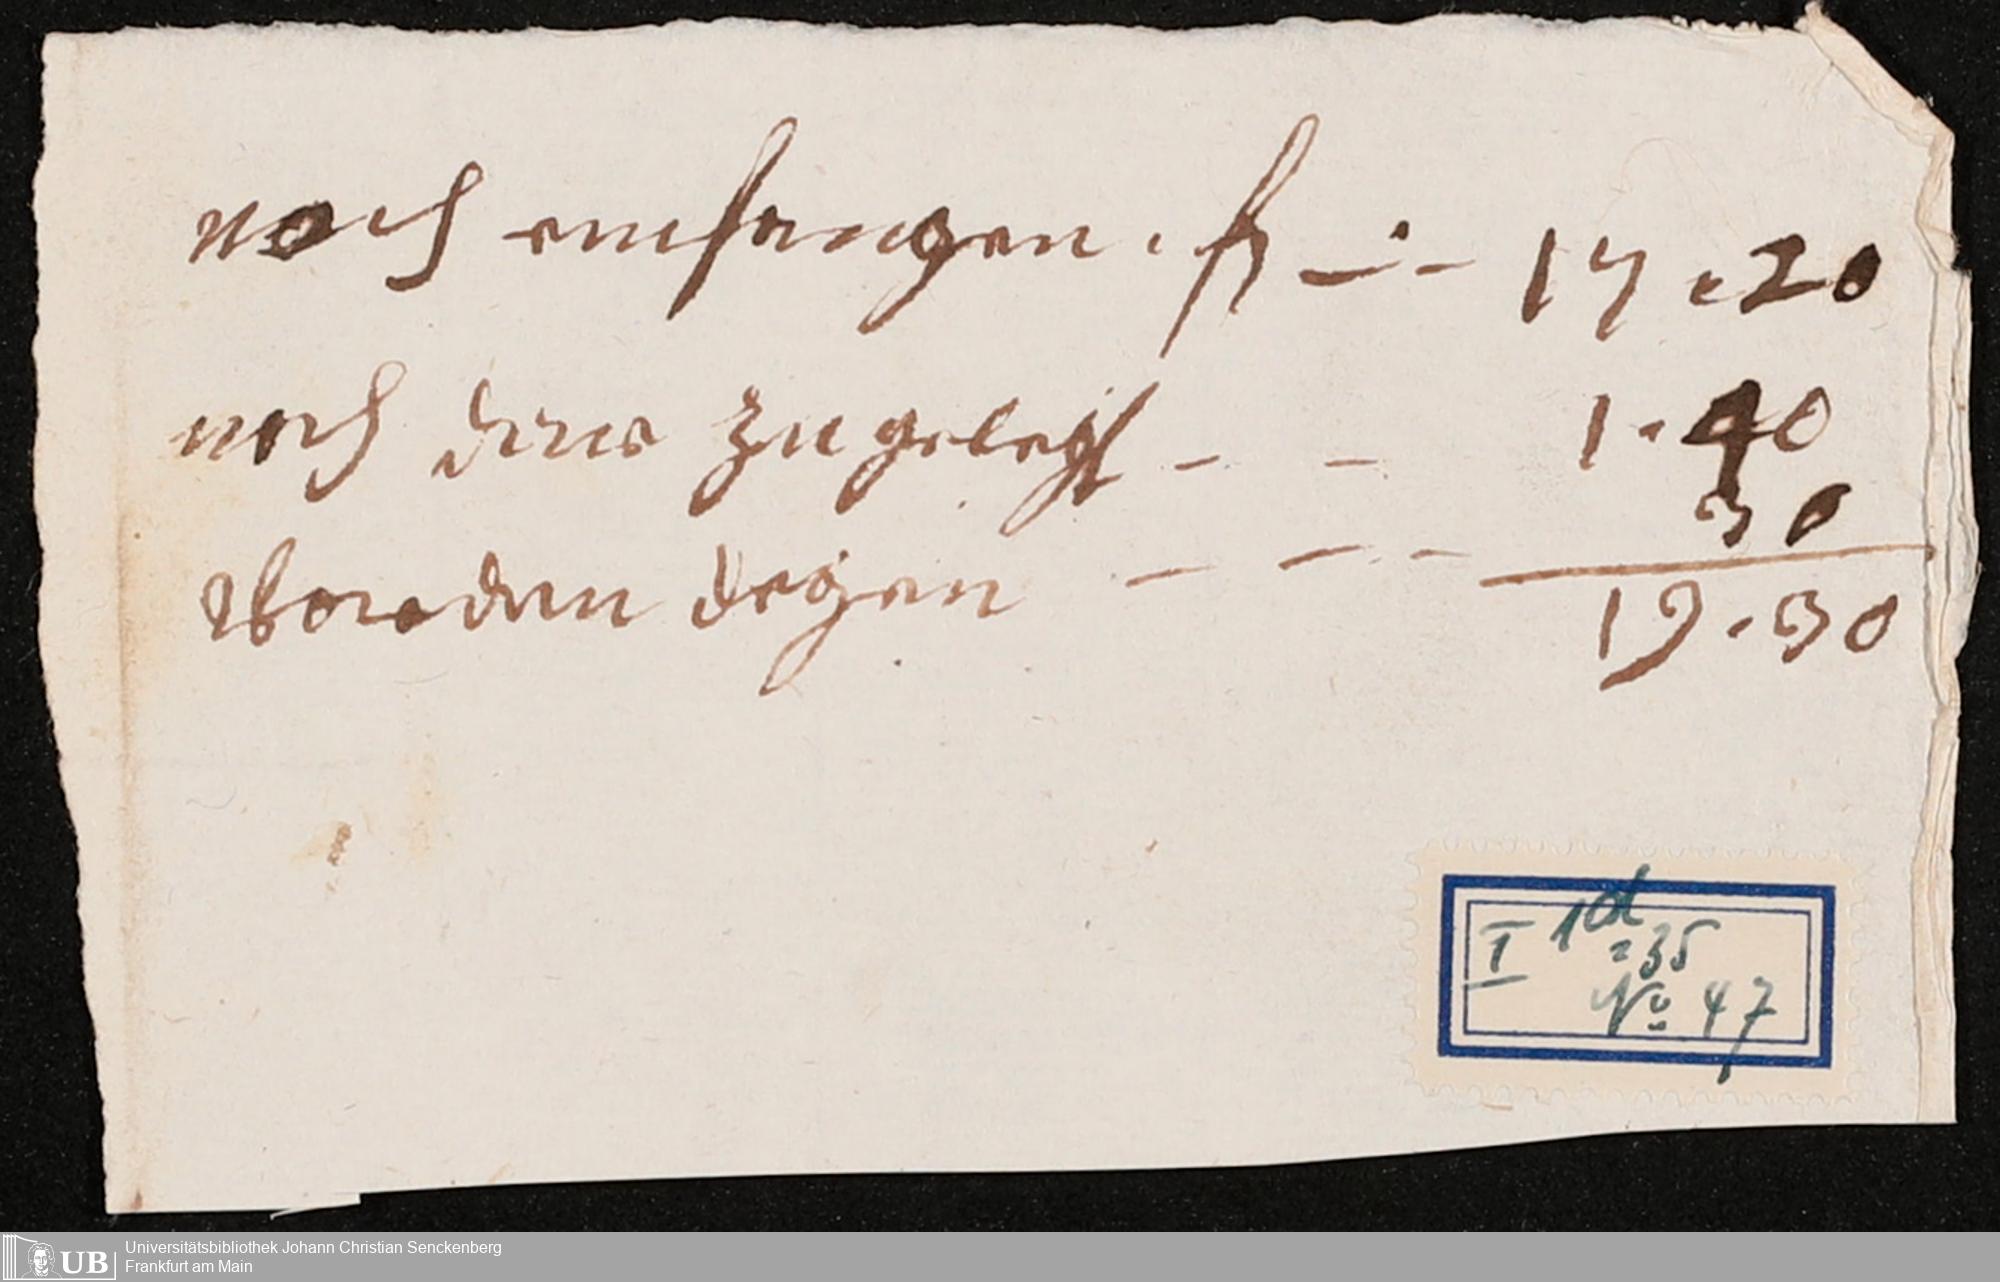 noch emfangen . fl — · — 17 . 20
noch darzu zu gelegt — — 1 . 40
vor den degen — — — 30
19 . 30
I 1d
=35
No 47
UB Universitätsbibliothek Johann Christian Senckenberg
Frankfurt am Main